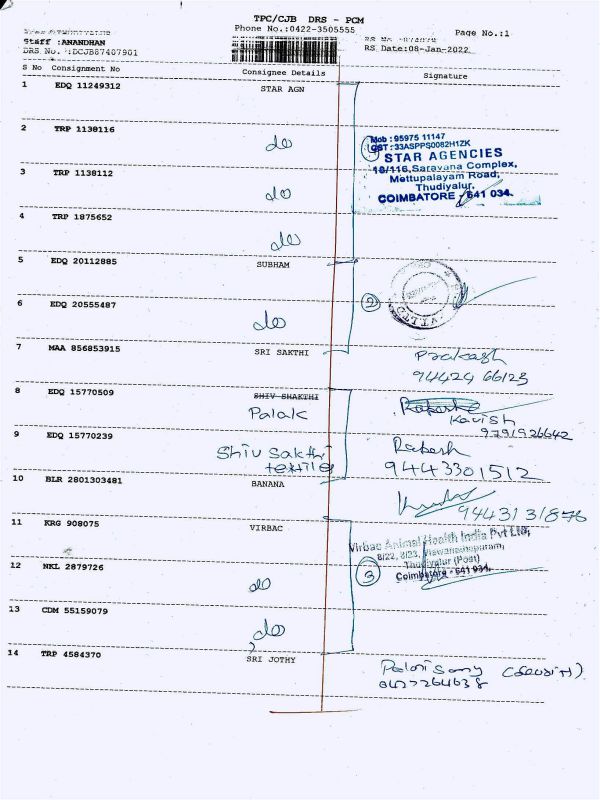 TPC/CJB DRS - PCM
Phone No.:0422-3505555 Page No.:1
Staff :ANANDHAN
DRS No. :DCJB87407901 RS Date:08-Jan-2022
S No Consignment No Consignee Details Signature
1 EDQ 11249312 STAR AGN
2 TRP 1138116 do
Mob : 95975 11147
GST : 33ASPPS0082H1ZK
STAR AGENCIES
18/116, Saravana Complex,
Mettupalayam Road,
Thudiyalur,
COIMBATORE - 641 034.
3 TRP 1138112 do
4 TRP 1875652 do
5 EDQ 20112885 SUBHAM
6 EDQ 20555487 do 2
7 MAA 856853915 SRI SAKTHI Prakash
94424 66123
8 EDQ 15770509 SHIV SHAKTHI
Palak Kavish
9791926642
9 EDQ 15770239 Shiv Sakthi textiles Rakesh
9443301512
10 BLR 2801303481 BANANA 9443131878
11 KRG 908075 VIRBAC
Virbac Animal Health India Pvt Ltd,
8/22, 8/23, Viswanathapuram,
Thudiyalur (Post)
Coimbatore - 641 034.
12 NKL 2879726 do 3
13 CDM 55159079 do
14 TRP 4584370 SRI JOTHY Palani Samy